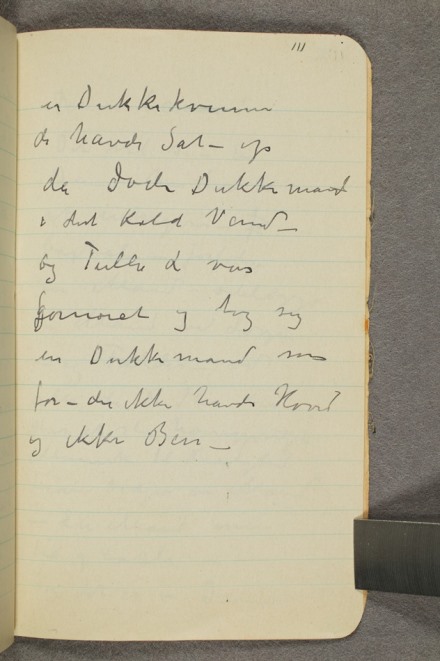 111
en Dukkekvinne
de havde Sat – op
den døde Dukkemand
i det kold Vand –
og Tulla d var
fornøiet og tog sig
en Dukkemand som
for – der ikke havde Hoved
og ikke Ben –